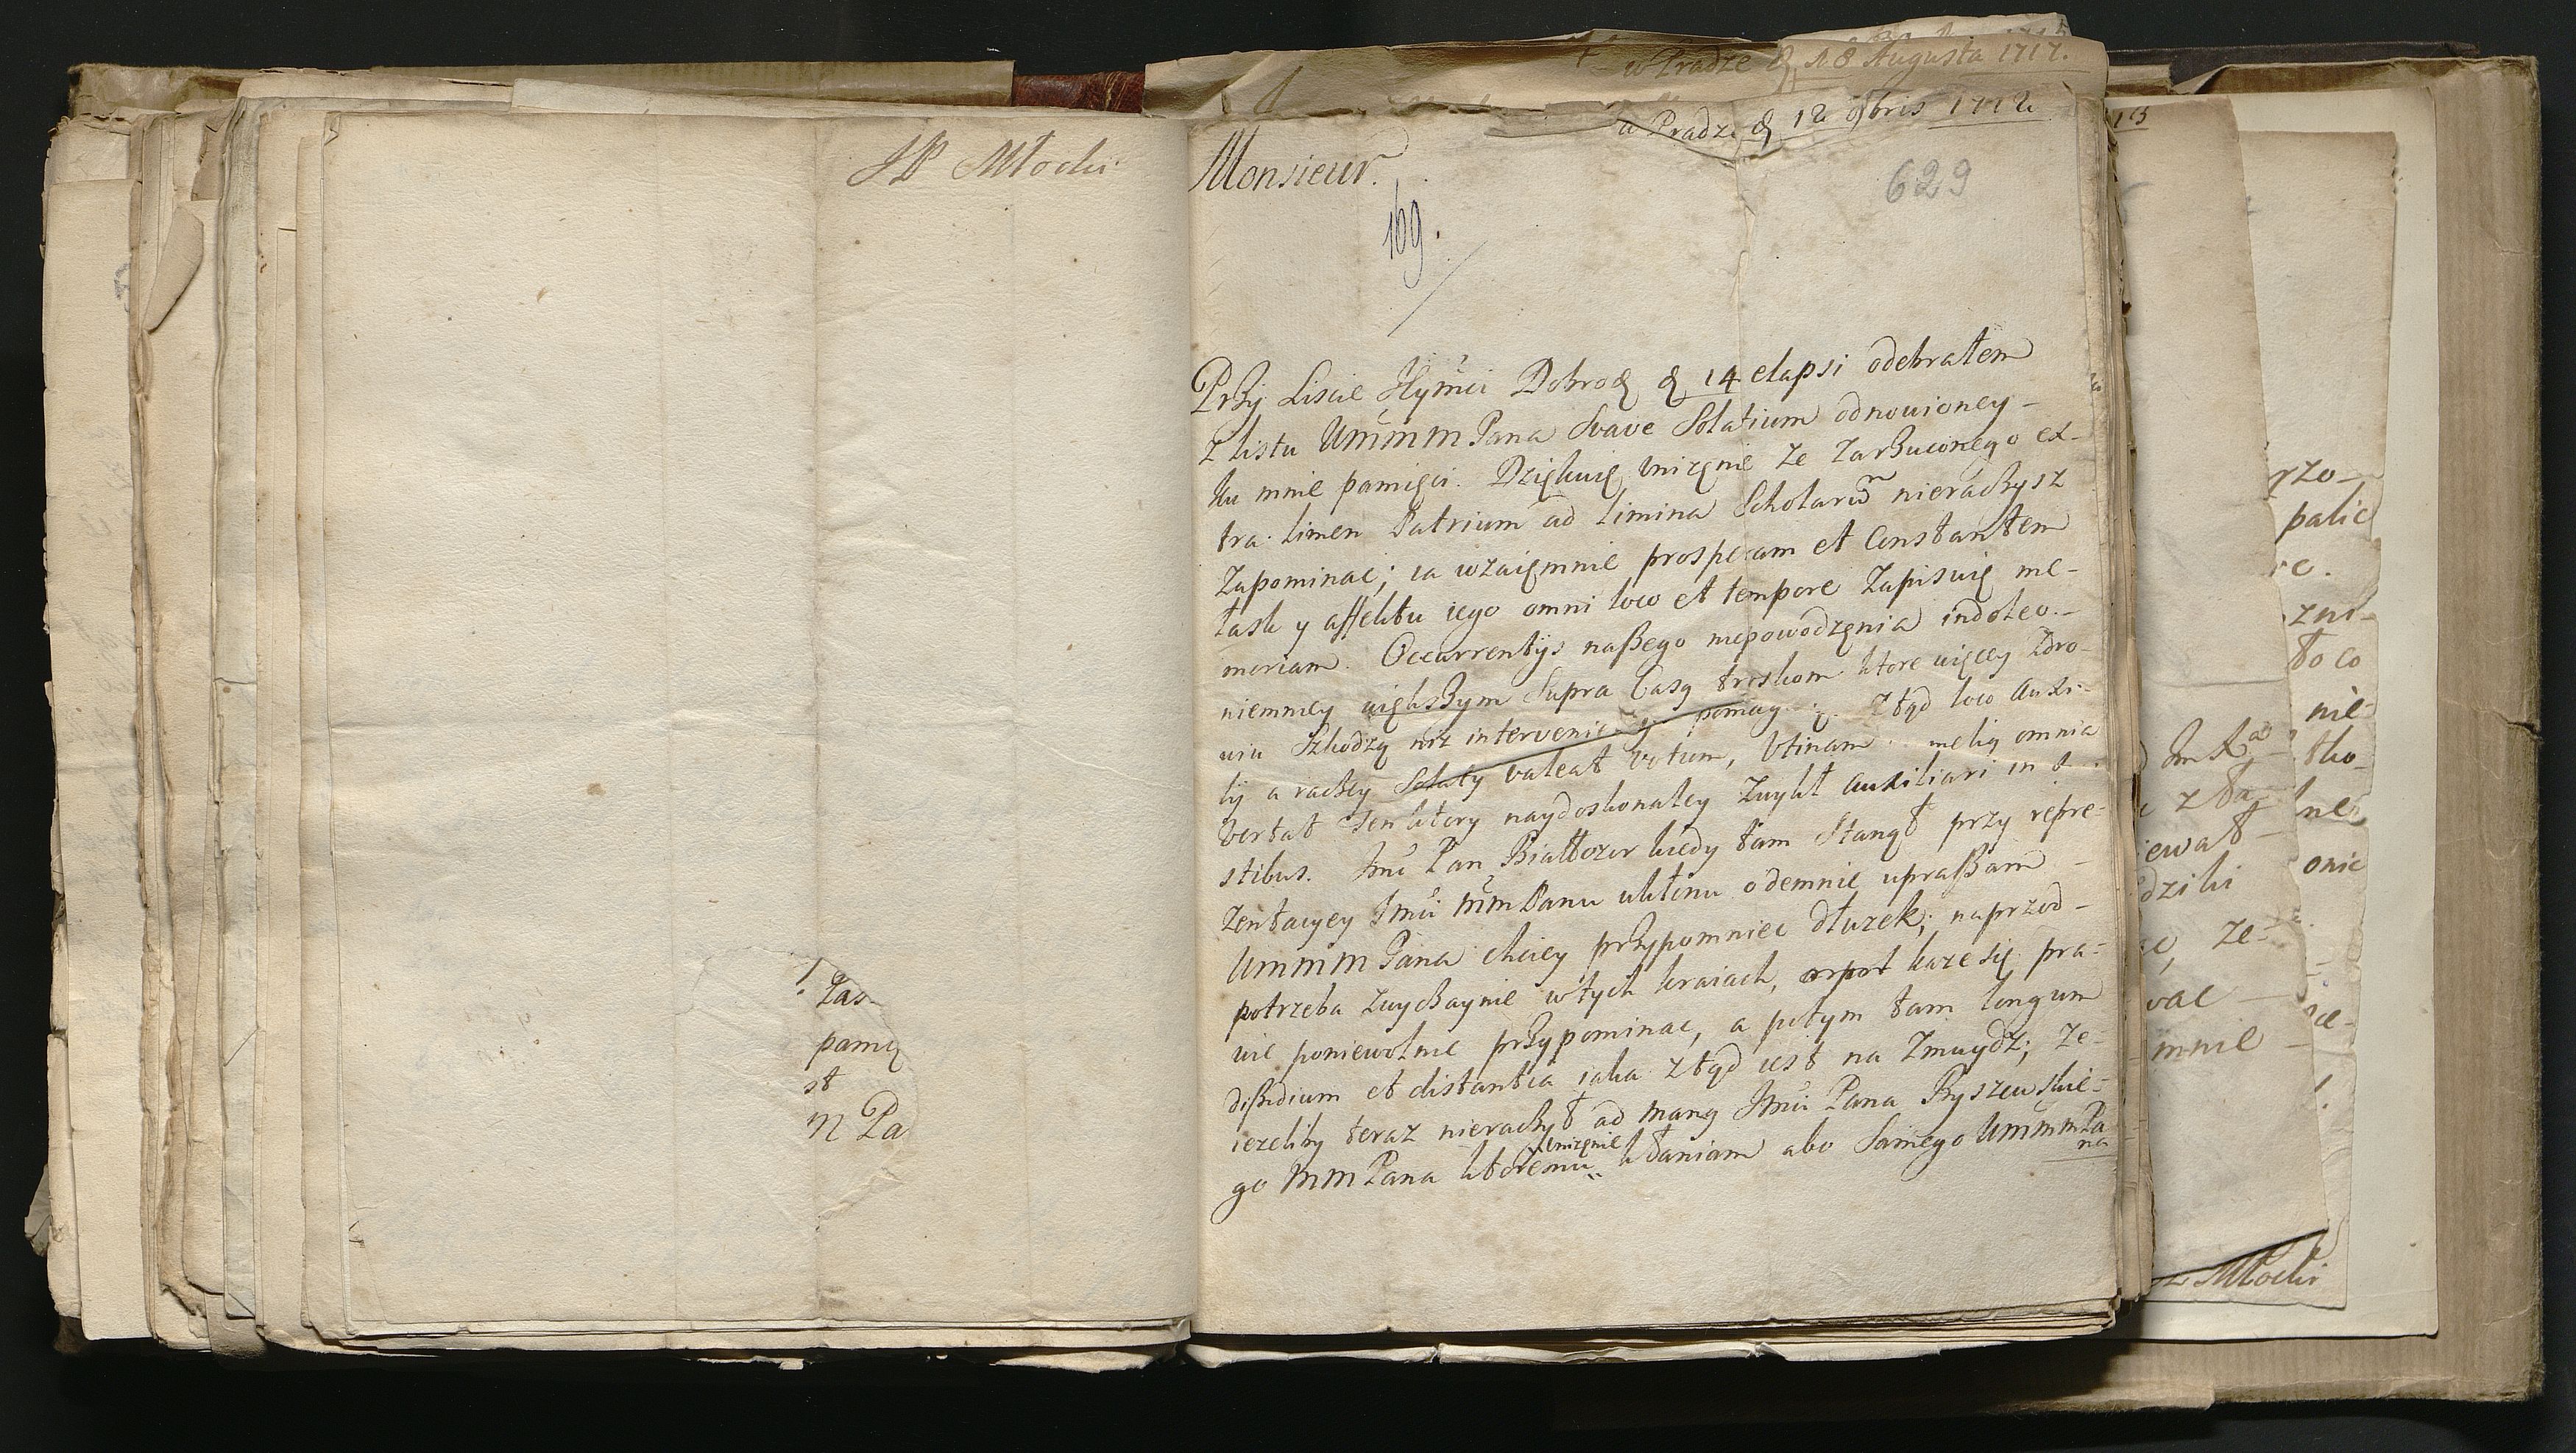 JP Młocki
w Pradze d. 18 Augusta 1717.
w Pradze d 12 8bris 1712
Monsieur.
629
169.
Przy Liscie JeyMci Dobrod d 14 elapsi odebrałem
z listu UMMM Pana Svave Solatium odnowioney
ku mnie pamięci. Dziękuię vnizęnie ze zarzuconego ex-
tra limen Patrium ad limina Scholarum nieraczysz
zapominac; ia wzaięmnie prosperam et Constantem
łask y affektu iego omni loco et tempore zapisuię me-
moriam. Occurrentijs naszego niepowodzęnia indoleo.
niemniey większym Supra Casq troskom ktore więcey zdro-
wiu Szkodzą niz intervenie pomag. Ztąd loco Auxi-
lij a raczey Solaty valeat votum, Utinam meliq omnia
vertat Ten ktory naydoskonaley zwykł auxiliari in
stibus. Jmć Pan Białłozor kiedy tam Stanął przy repre-
zentacyey Jmci MM Panu ukłonu odemnie upraszam
UMMM Pana chciey przypomniec dłuzek; naprzod
potrzeba zwyczaynie w tych kraiach, kaze się pra-
wie poniewolnie przypominac, a potym tam longum
dissidium et distantia iaka ztąd iest na Zmuydz; ze-
iezeliby teraz nieraczył ad manq Jmci Pana Ryszewskie-
go MM Pana ktoremu vnizęnie kłaniam abo Samego UMMM Pa
na
Łas
pamię
st
M Pa
rzo-
palic
zni-
to co
nie-
tko
onic
ewał
dzili
ze-
wac
mnie
Młocki